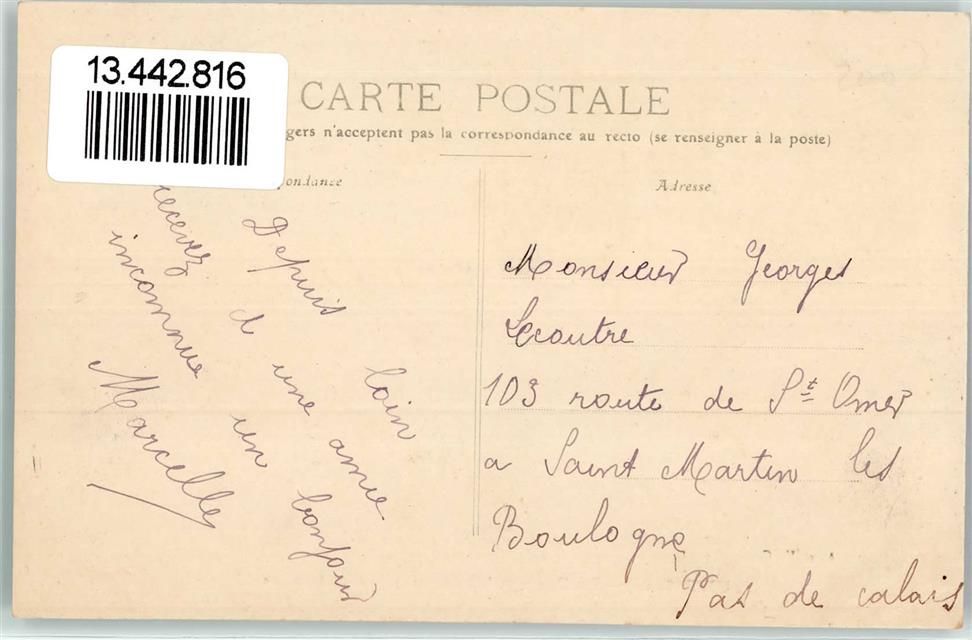 13.442.816
CARTE POSTALE
gers n'acceptent pas la correspondance au recto (se renseigner à la poste)
pondance
Adresse
Depuis loin
recevez d une amie
inconnue un bonjour
Marcelle
Monsieur Georges
Lecoutre
103 route de St Omer
a Saint Martin les
Boulogne
Pas de calais